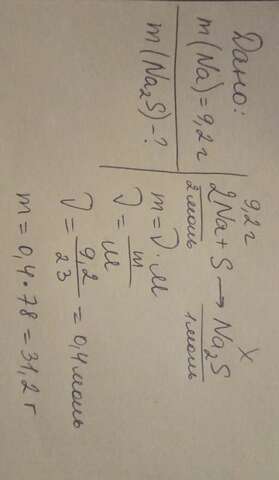 Дано:
m(Na)=9,2г
m(Na₂S)-?
9,2г x
2Na+S→Na₂S
2моль 1моль
m=ν·M
ν=m/M
ν=9,2/23=0,4моль
m=0,4*78=31,2 г